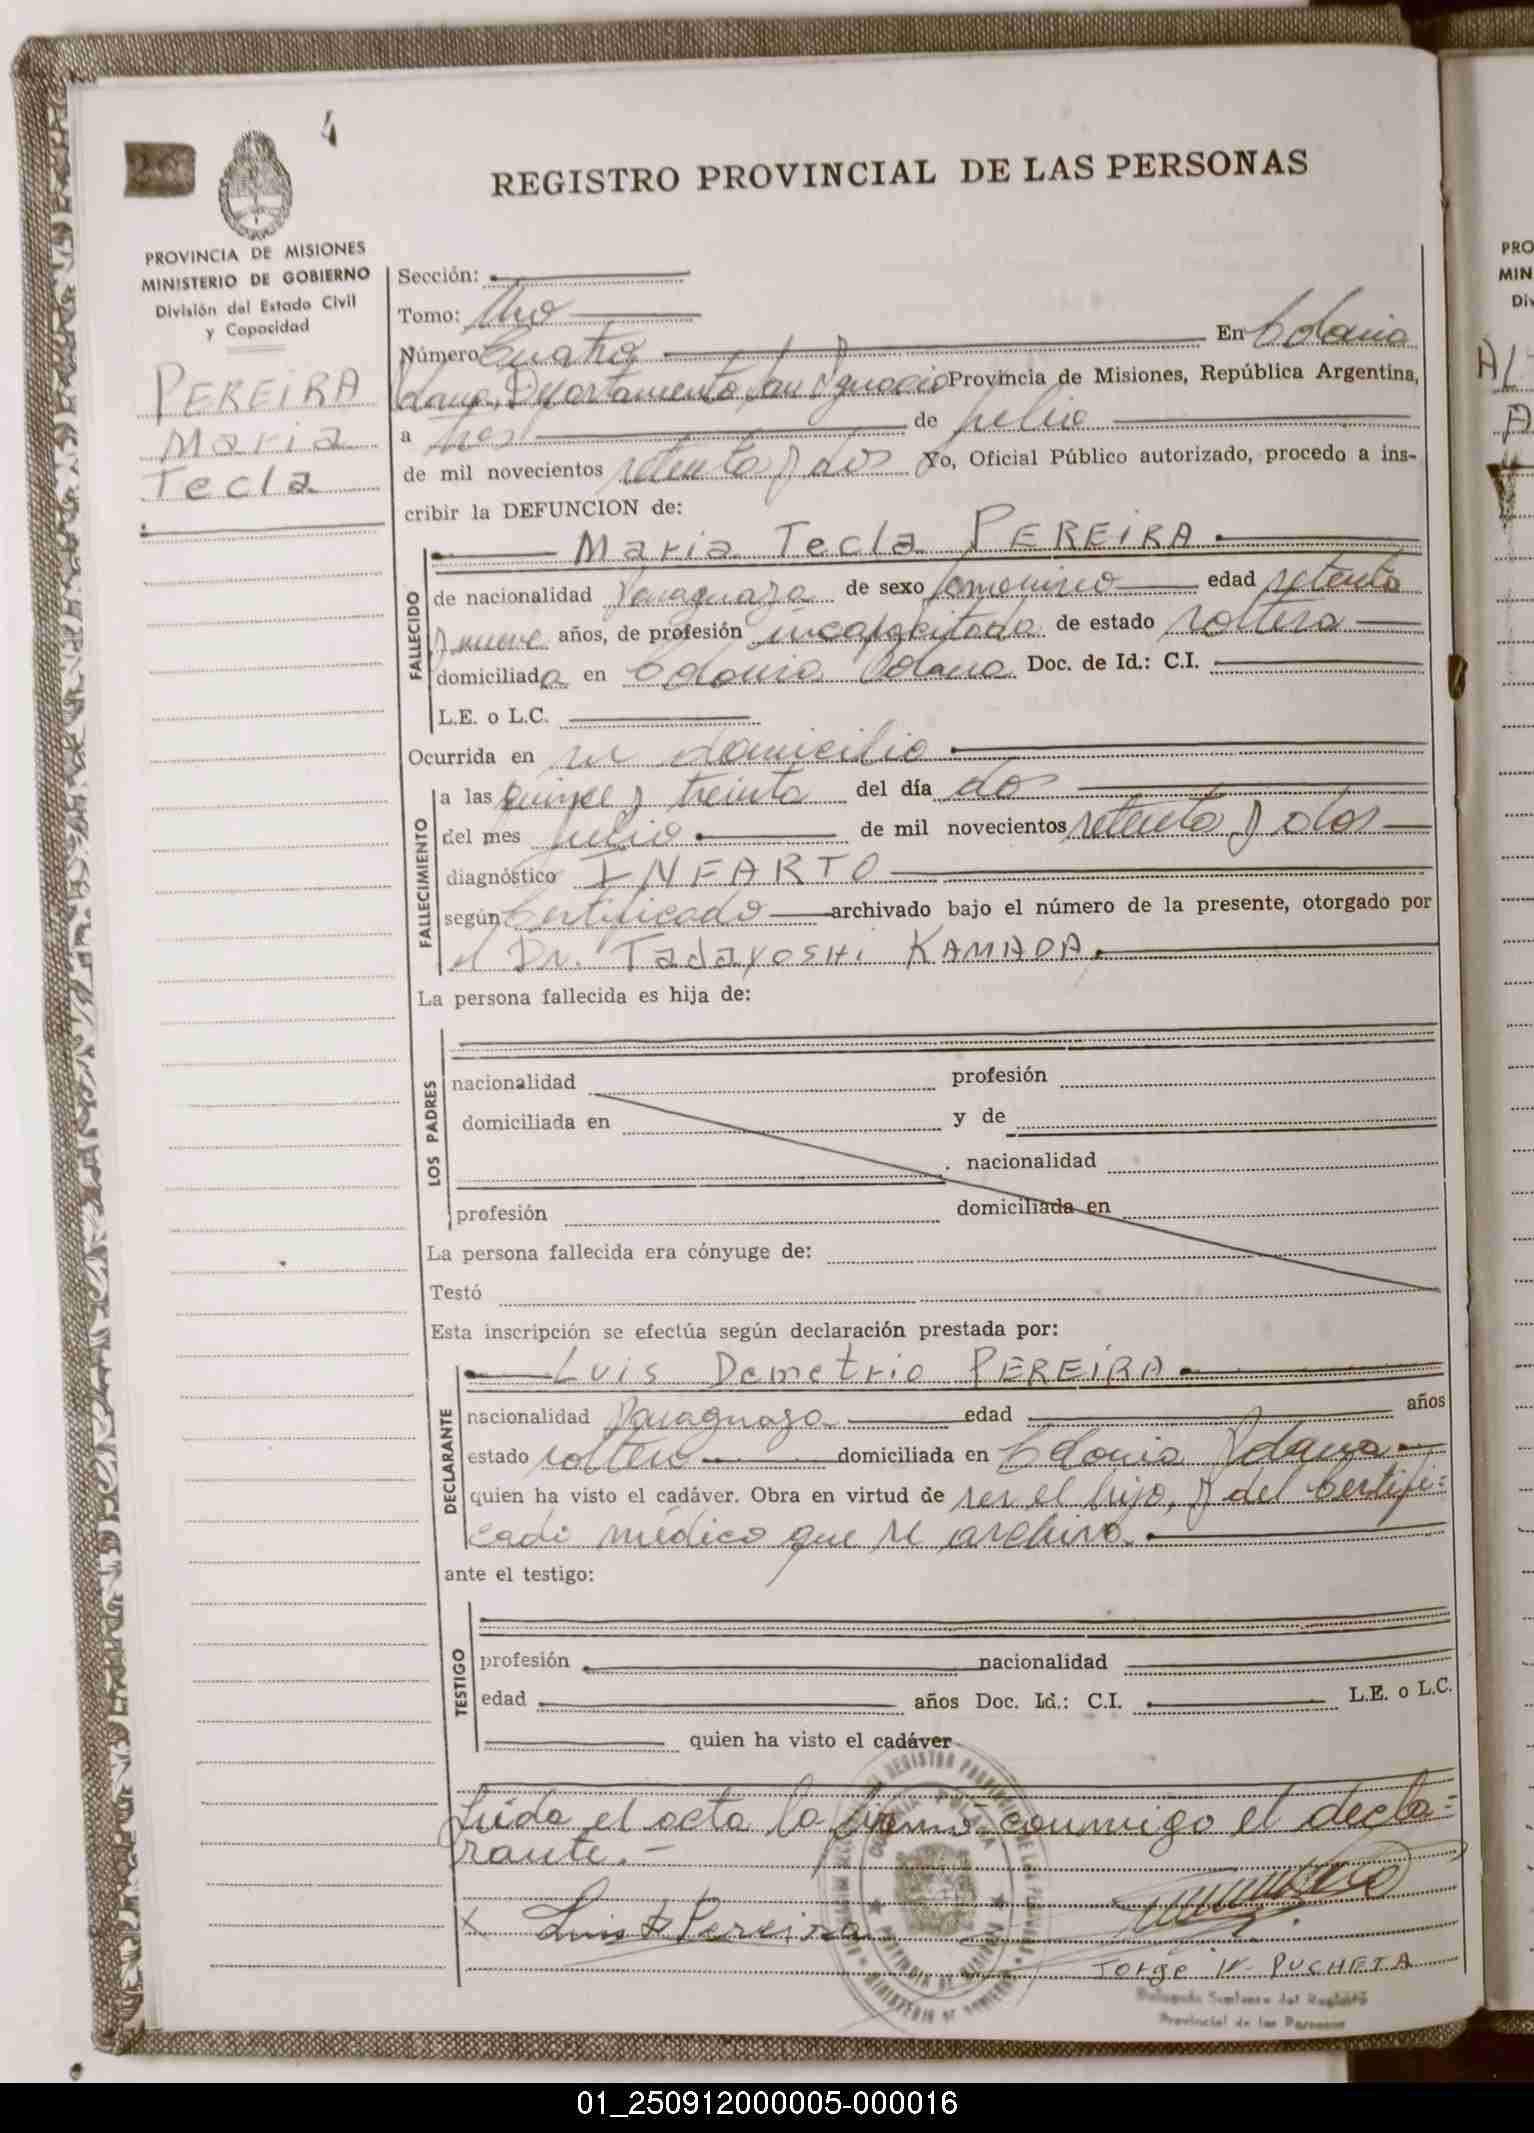 4
REGISTRO PROVINCIAL DE LAS PERSONAS
PROVINCIA DE MISIONES
MINISTERIO DE GOBIERNO
División del Estado Civil
y Capacidad
PEREIRA
Maria
Tecla
Sección:
Tomo: Uno
Número Cuatro En Colonia
Polana, Departamento San Ignacio Provincia de Misiones, República Argentina,
a tres de julio
de mil novecientos setenta y dos Yo, Oficial Público autorizado, procedo a ins-
cribir la DEFUNCION de:
Maria Tecla PEREIRA
FALLECIDO
de nacionalidad Paraguaya de sexo femenino edad setenta
y nueve años, de profesión incapacitada de estado soltera
domiciliada en Colonia Polana Doc. de Id.: C.I.
L.E. o L.C.
Ocurrida en su domicilio
FALLECIMIENTO
a las quince y treinta del día dos
del mes julio de mil novecientos setenta y dos
diagnóstico INFARTO
según Certificado archivado bajo el número de la presente, otorgado por
el Dr. Tadayoshi KAMADA
La persona fallecida es hija de:
LOS PADRES
nacionalidad profesión
domiciliada en y de
nacionalidad
profesión domiciliada en
La persona fallecida era cónyuge de:
Testó
Esta inscripción se efectúa según declaración prestada por:
Luis Demetrio PEREIRA
DECLARANTE
nacionalidad Paraguaya edad años
estado soltero domiciliada en Colonia Polana
quien ha visto el cadáver. Obra en virtud de ser el hijo, y del Certifi=
cado médico que se archiva.
ante el testigo:
TESTIGO
profesión nacionalidad
edad años Doc. Id.: C.I. L.E. o L.C.
quien ha visto el cadáver
Leída el acta la firmó conmigo el decla=
rante.-
x Luis D Pereira
Jorge PUCHETA
Delegado Suplente del Registro
Provincial de las Personas
PRO
MIN
Div
01_250912000005-000016